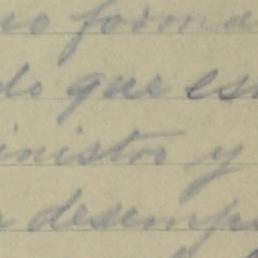 no forma
do que es
inistro y
desemp